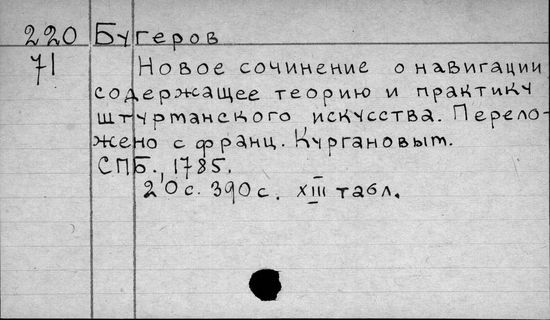 220 Бугеров
71 Новое сочинение о навигации
содержащее теорию и практику
штурманского искусства. Перело-
жено с франц. Кургановым.
СПБ., 1785.
20с. 390с. XIII табл.